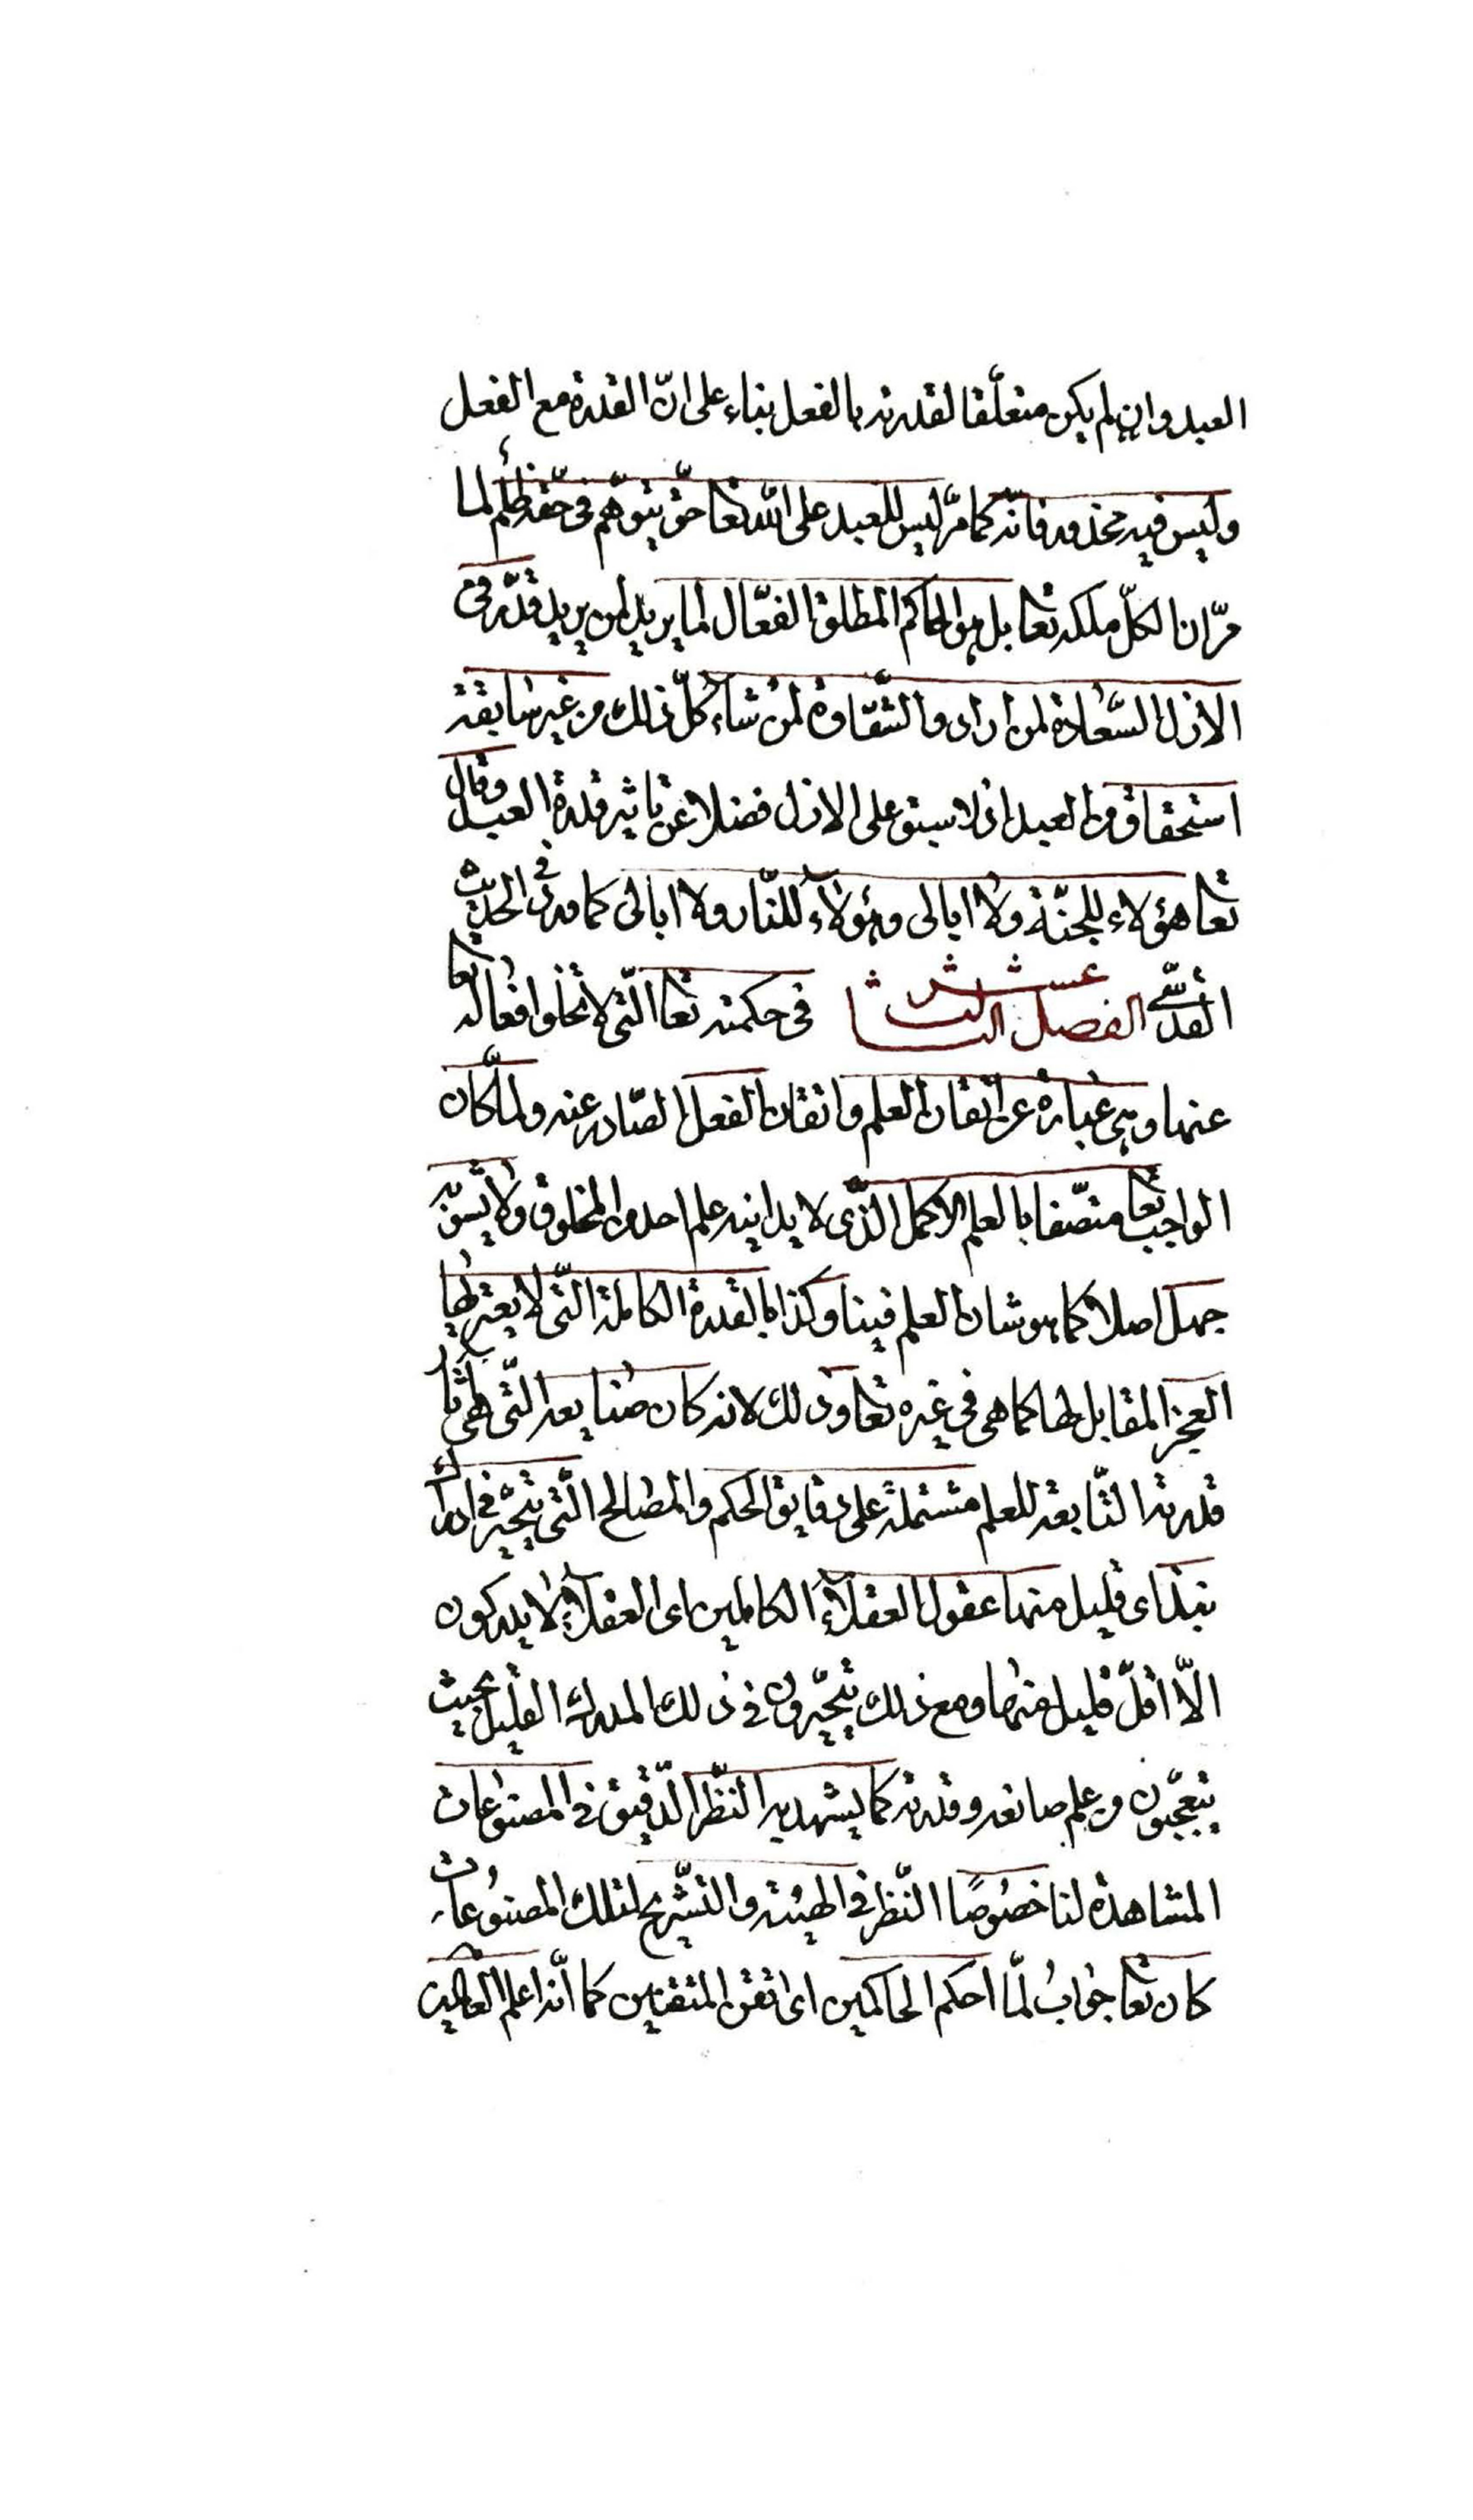 العبد وان لم يكن متعلّقا لقدرته بالفعل بناء على انّ القدرة مع الفعل
وليس فيه محذور فانّه كما مرّ ليس للعبد على الله تعا حقّ يتوهّم فى حقّه ظلم لما
مرّ ان الكلّ ملكه تعا بل هو الحاكم المطلق الفعّال لما يريد لمن يريد قدّر فى
الازل السّعادة لمن اراد والشّقاوة لمن شاء كلّ ذلك من غير سابقة
استحقاق من العبد اذ لا سبق على الازل فضلا عن تاثير قدرة العبد وقال
تعا هؤلاء للجنّة ولا ابالى وهؤلاء للنّار ولا ابالى كما ورد فى الحديث
القدسّى الفصل الثالث عشر فى حكمته تعا الّتى لا تخلوا فعاله تعا
عنها وهى عبارة عن اتقان العلم واتقان الفعل الصّادر عنه ولمّا كان
الواجب تعا متصّفا بالعلم الاكمل الّذى لا يدانيه علم احد من المخلوق ولا يشوبه
جهل اصلا كما هو شان العلم فينا وكذا بالقدرة الكاملة الّتى لا يعتريها
العجز المقابل لها كما هى فى غيره تعا وذلك لانه كان صنايعه الّتى هى باثار
قدرته التّابعة للعلم مشتملة على دقايق الحكم والمصالح الّتى يتحيّر فى ادراك
نبذ اى قليل منها عقول العقلاء الكاملين اى العقلاء لا يدركون
الّا اقلّ قليل منها ومع ذلك يتحيّرون فى ذلك المدرك القليل بحيث
يتعجّبون من علم صانعه وقدرته كما يشهد به النّظر الدّقيق فى المصنوعات
المشاهدة لنا خصوصًا النّظر فى الهيئة والتّشريح لتلك المصنوعات
كان تعا جواب لمّا احكم الحاكمين اى اتقن المتقنين كما انّه اعلم العالمين